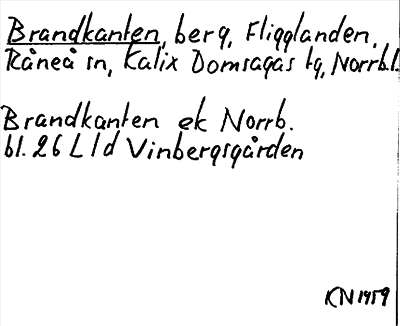 Brandkanten, berg, Fligglanden,
Råneå sn, Kalix Domsagas tg, Norrb.l.
Brandkanten ek Norrb.
bl. 26 L ld Vinbergsgården
KN 1959